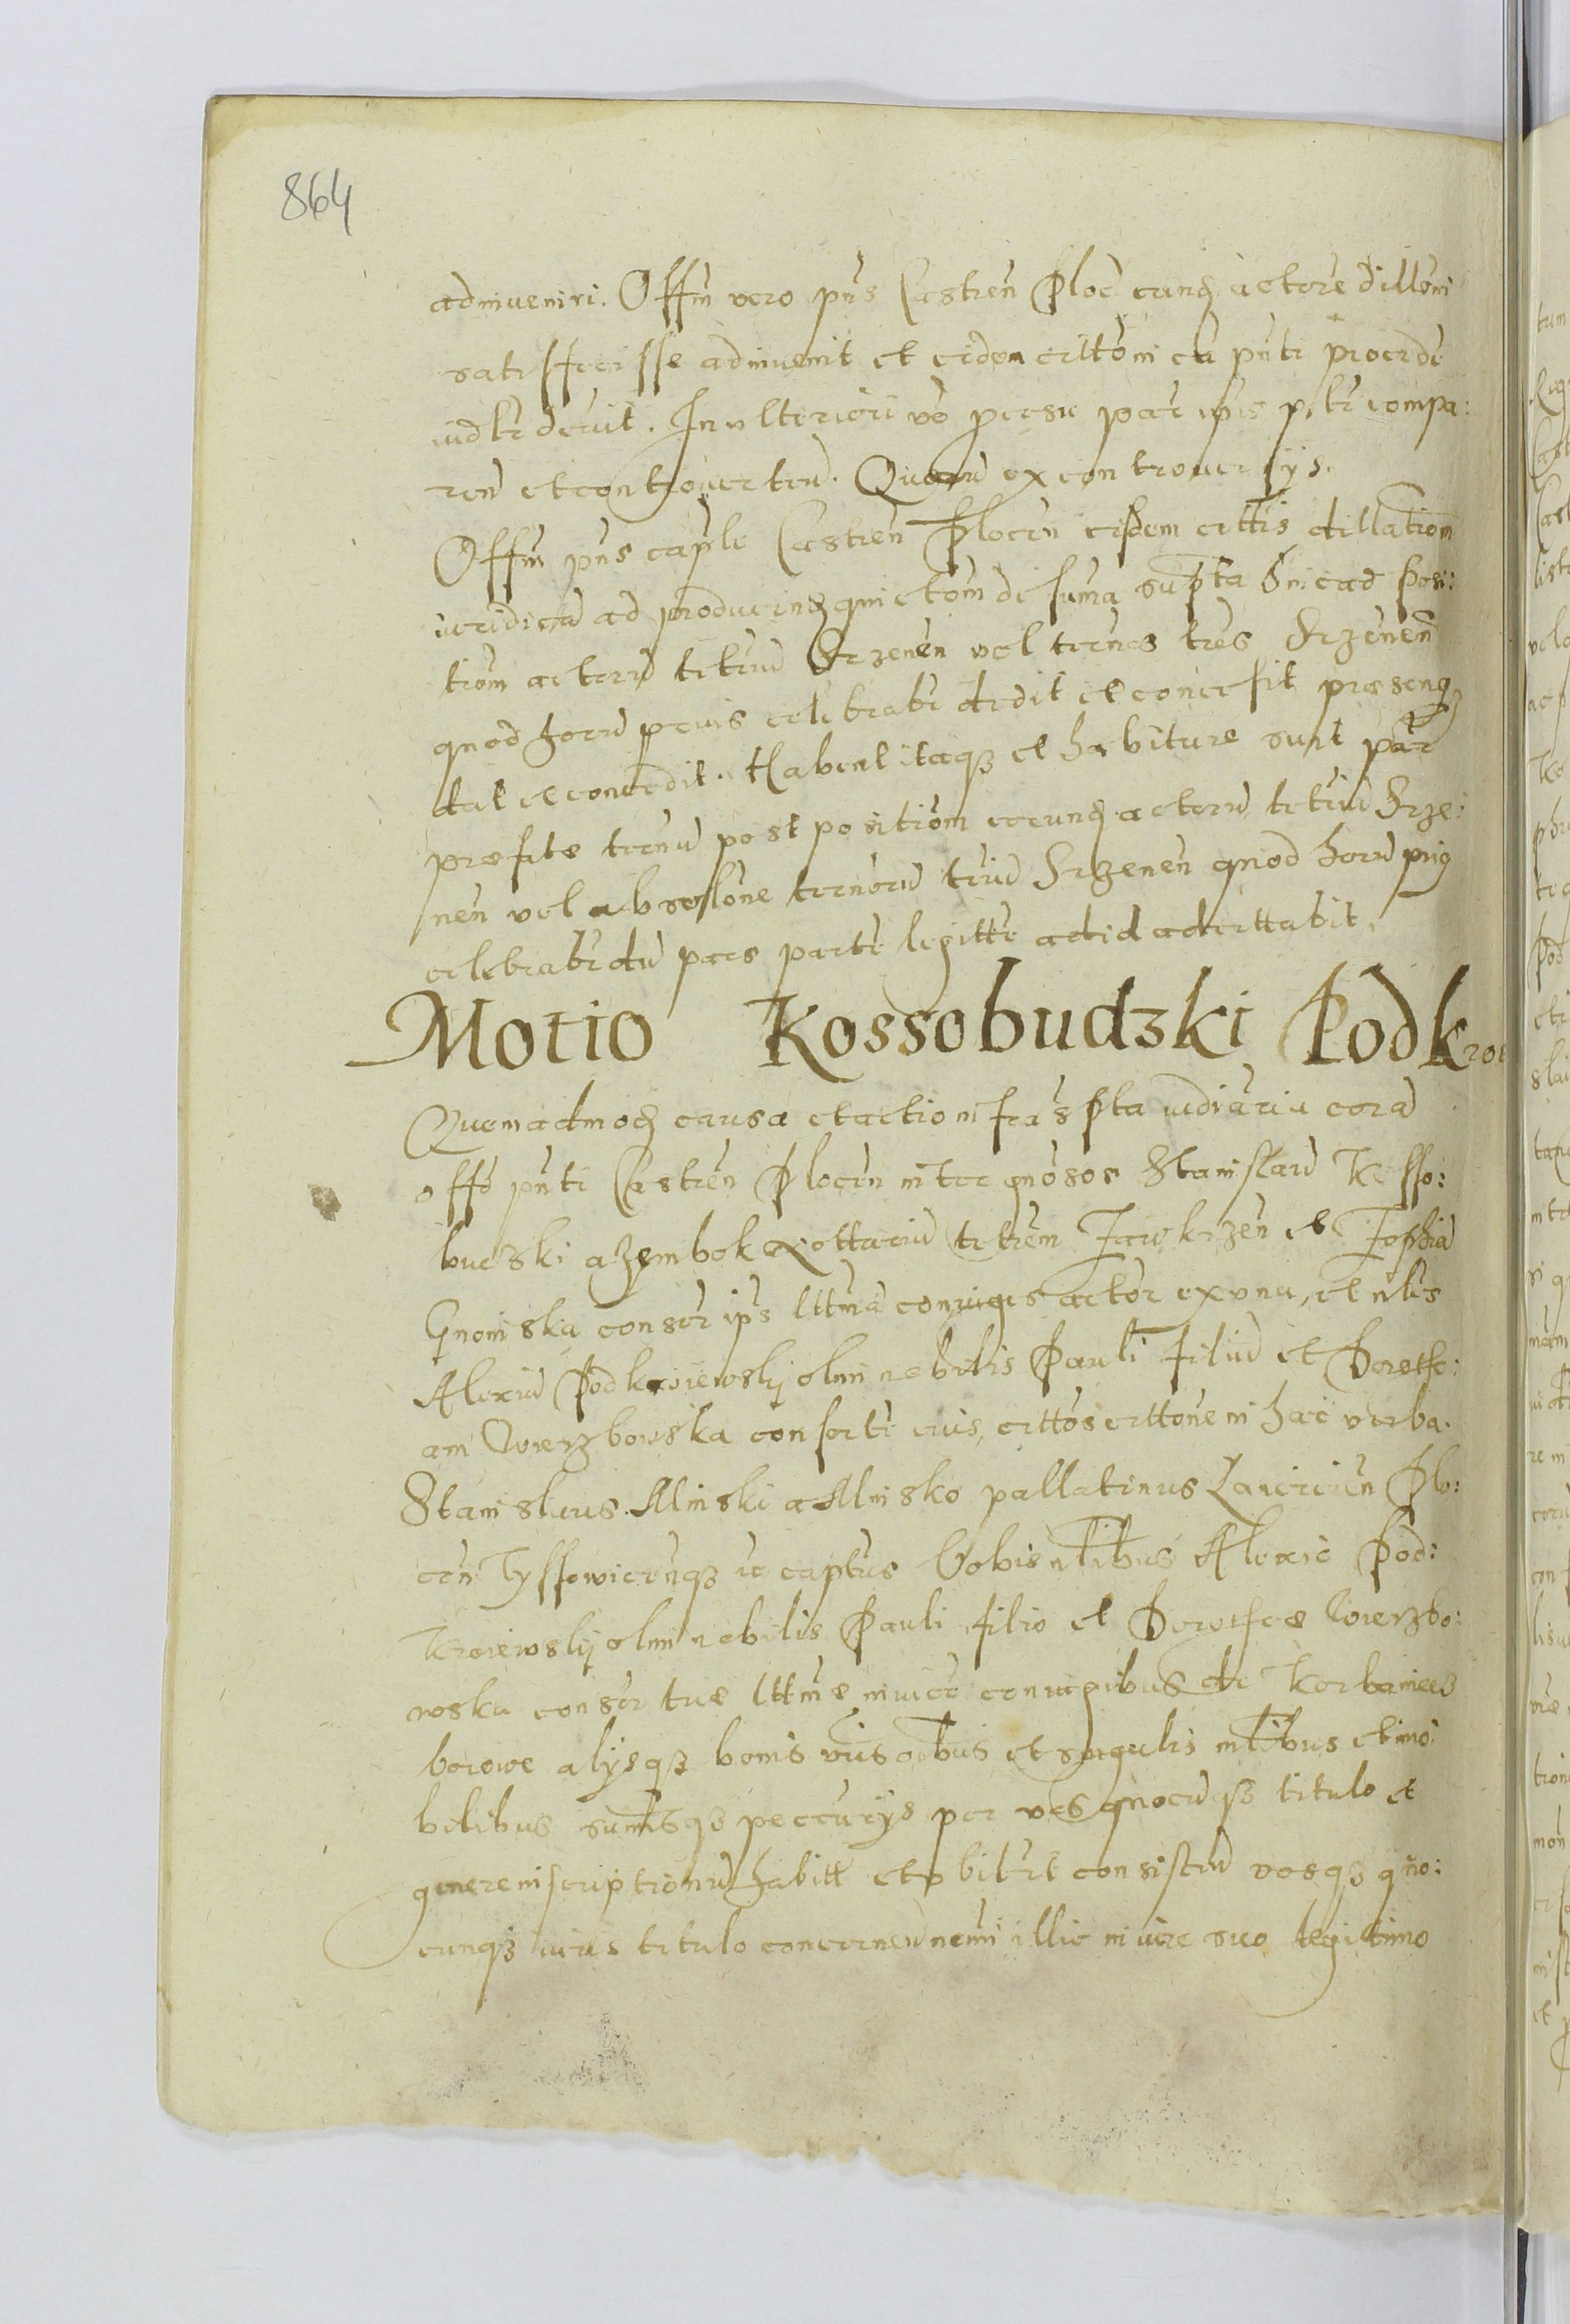 864
adinveniri. Offm vero pns Castren Ploc eund actore dilloni
satisfecisse adinvenit et eidem cittoni cu pnti procede
iudlr decrit. In ulteriori vo pcesu par ipis psltr compa:
ren et controverten. Quaru ex controversys.
Offm pns caple Castren Plocen eisdem cittis dillation
iuridica ad producend quietom de suma supta hic ad posi:
tiom actoru tctriu Srzenen vel trenos tres Srzenen
quod horu prius celebrabr dedit et concessit praesenq
dat et concedit. Habent itaq et habiture sunt par
praefite trenu post positiom eorund actoru tctriu Srze:
nen vel absolone trenoru triu Srzenen quod horu prig
celebrabr du pars parte legitte ad id adcittabit.
Motio Kossobudzki Podkroi
Quemadmod causa et action infrascpta iudiaria cora
offo pnti Castren Plocen inter gnosos Stanislau Kosso:
buczki a Zembok Notariu tctrem Zawkrzen et Zophia
Gnoinska consor ips lttma coniuges actor ex una, et nles
Alexiu Podkroiewsky olim nobilis Pauli filiu et Doroth:
am Wierzbowska consorte eius, cittos cittone in hac verba.
Stanislaus Minski a Minsko pallatinus Lancicien Plo:
cen Lyssowicenq ic captus Vobis nlibus Alexio Pod:
kroiewsky olim nobilis Pauli filio et Dorothea Wierzbo:
wska consor tue lttme invice coniugibus de Korbaniecz
borowe alysq bonis vris oibus et singulis mlibus et imo
bilibus sumisq peccurys per vos quocuq titulo et
genere inscriptionu habitt et obilrt consisten vosq quo:
cunq iuris titulo concernen nemi illic in iure suo legitimo